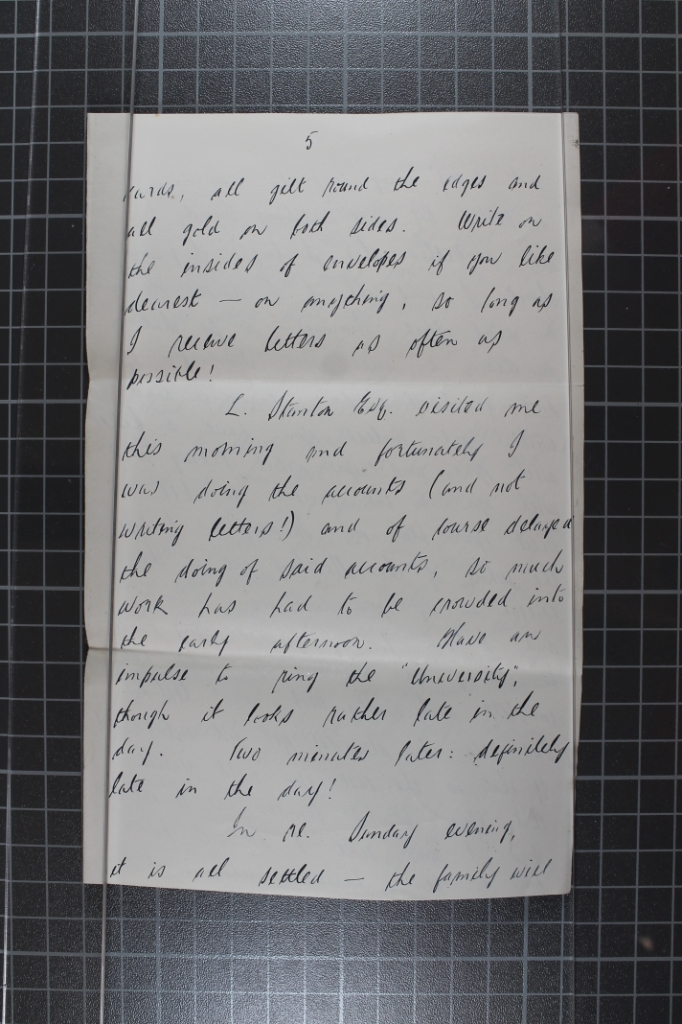 5
cards, all gilt round the edges and
all gold on both sides. Write on
the insides of envelopes if you like
dearest — on anything, so long as
I receive letters as often as
possible!
L. Stanton Esq. visited me
this morning and fortunately I
was doing the accounts (and not
writing letters!) and of course delayed
the doing of said accounts, so much
work has had to be crowded into
the early afternoon. Have an
impulse to ring the "University",
though it looks rather late in the
day. Two minutes later: definitely
late in the day!
In re. Sunday evening,
it is all settled — the family will